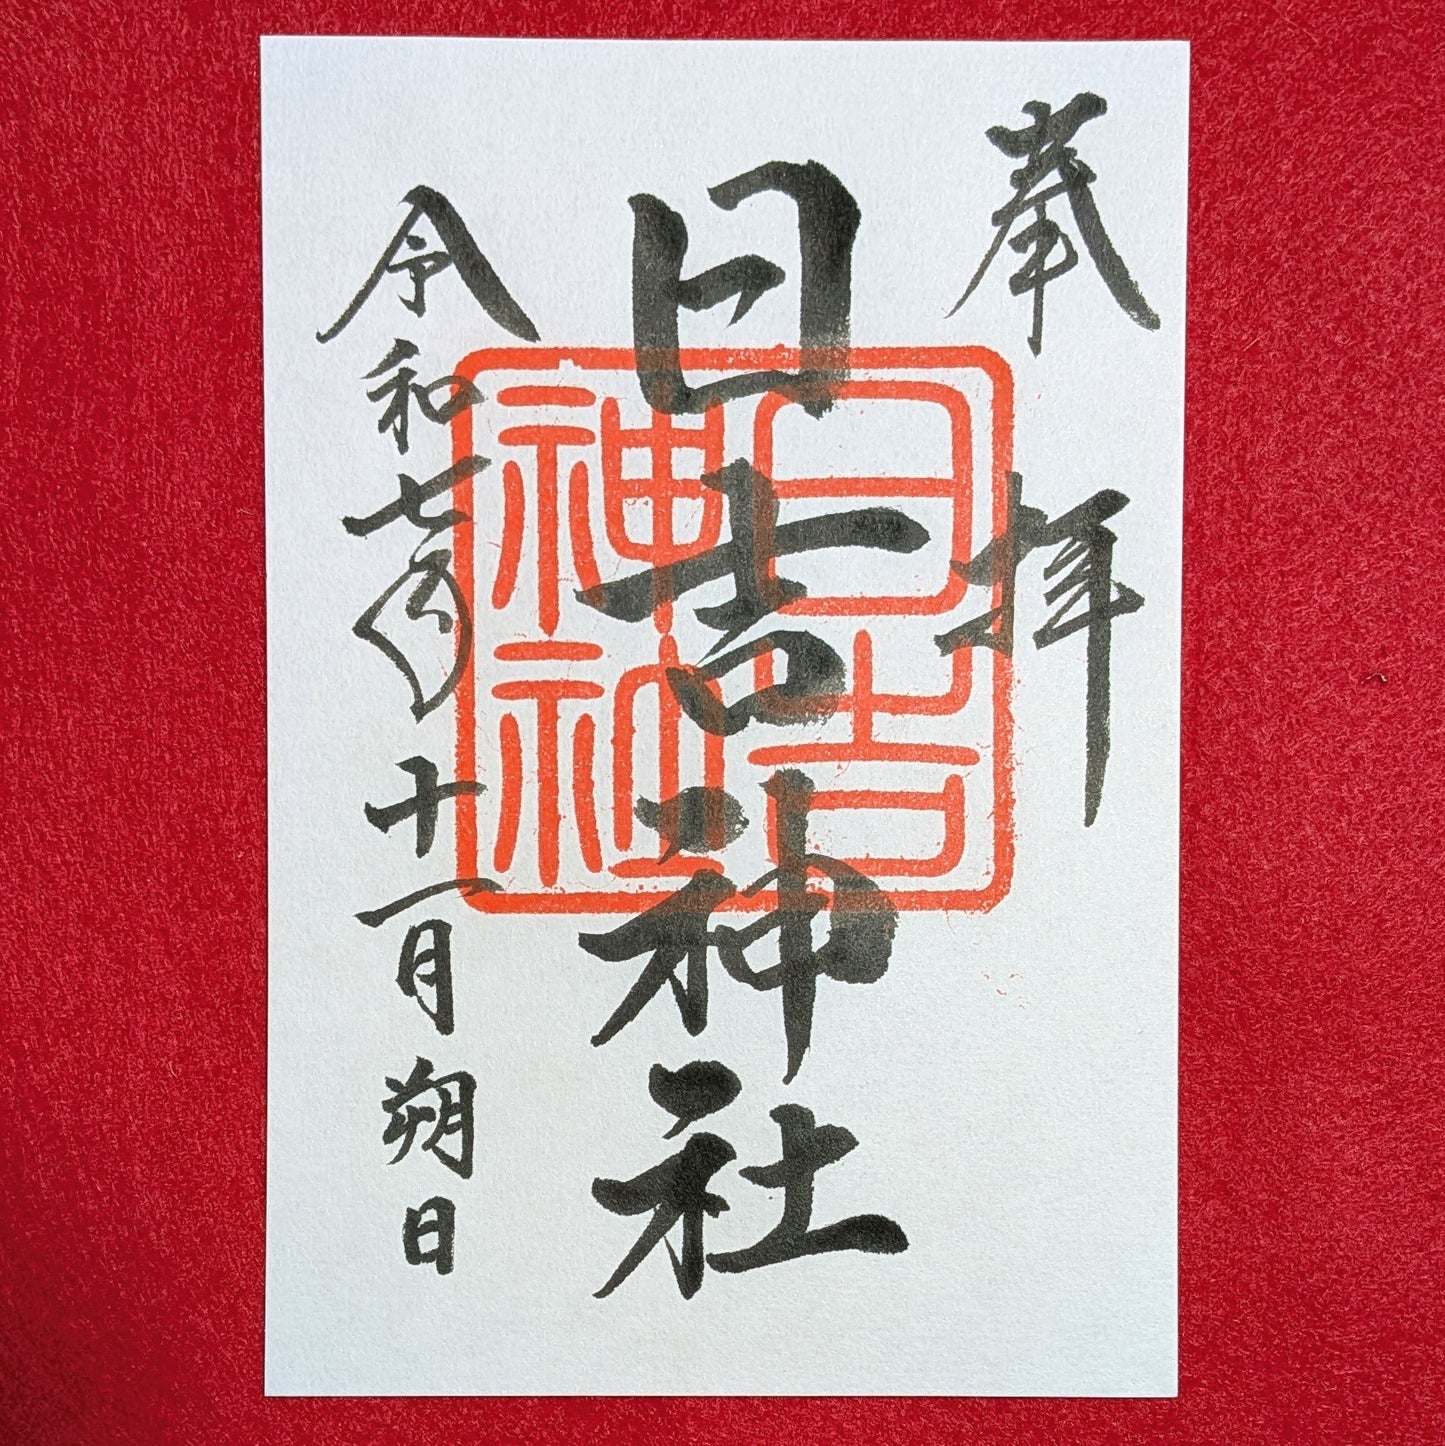 奉拝
日吉神社
日吉
神社
令和七年十一月朔日